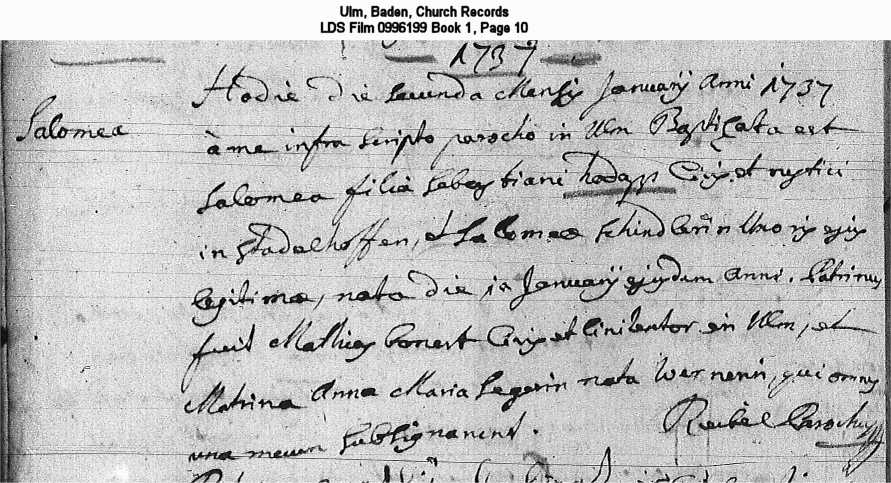 Ulm, Baden, Church Records
LDS Film 0996199 Book 1, Page 10
1737
Hodie die secunda Mensis January Anni 1737
Salomea
à me infra scripto parocho in Ulm Baptizata est
Salomea filia Sebastiani Civis et rustici
in Stadelhoffen, et Salomeae Schindlerin Uxoris ejus
legitimae, nata die 1a January ejusdem Anni. Patrinus
fuit Mathias Civis et in Ulm, et
Matrina Anna Maria Segerin nata Wernerin, qui omnes
una mecum subsignarunt. Parochus